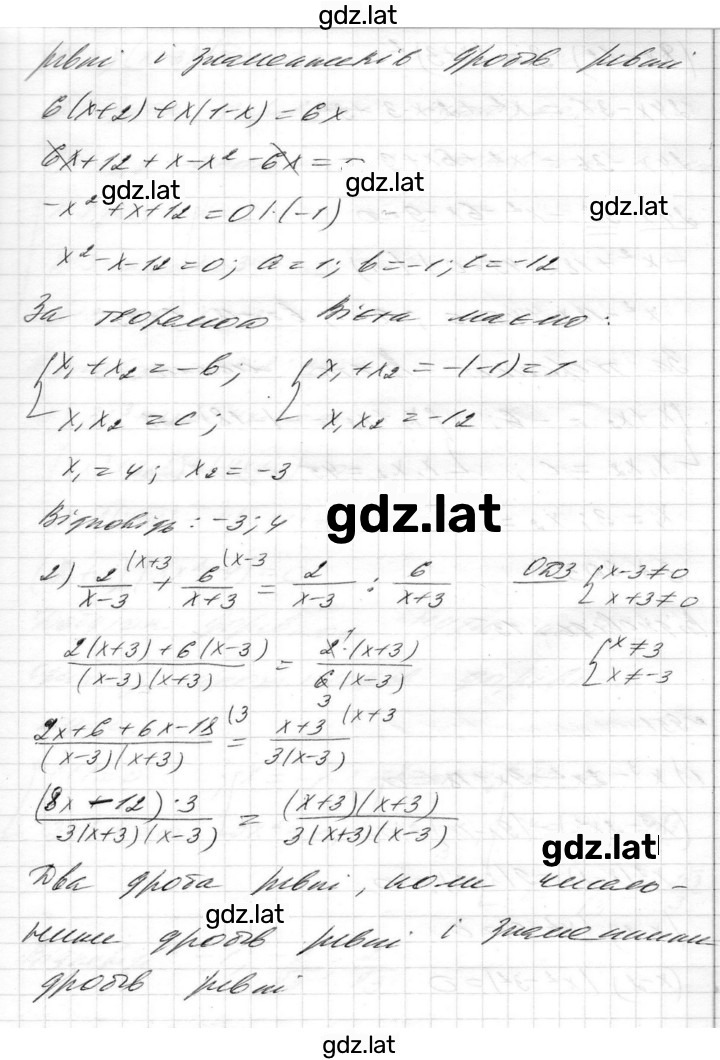 gdz.lat
рівні і знаменників дробів рівні
6(x+2)+x(1-x)=6x
6x+12+x-x²-6x=
gdz.lat
gdz.lat
-x²+x+12=0 |·(-1)
gdz.lat
x²-x-12=0; a=1; b=-1; c=-12
За теоремою Вієта маємо:
{x₁+x₂=-b; {x₁+x₂=-(-1)=1
x₁x₂=c; x₁x₂=-12
x₁=4; x₂=-3
Відповідь: -3; 4
gdz.lat
2) 2/(x-3) (x+3 + 6/(x+3) (x-3 = 2/(x-3) : 6/(x+3) ОДЗ {x-3≠0
x+3≠0
(2(x+3)+6(x-3))/((x-3)(x+3)) = (2¹·(x+3))/(6₃(x-3)) {x≠3
x≠-3
(2x+6+6x-18)/((x-3)(x+3)) (3 = (x+3)/(3(x-3)) (x+3
((8x-12)·3)/(3(x+3)(x-3)) = ((x+3)(x+3))/(3(x+3)(x-3))
gdz.lat
Два дроба рівні, коли чисель-
gdz.lat
ники дробів рівні і знаменники
дробів рівні
gdz.lat